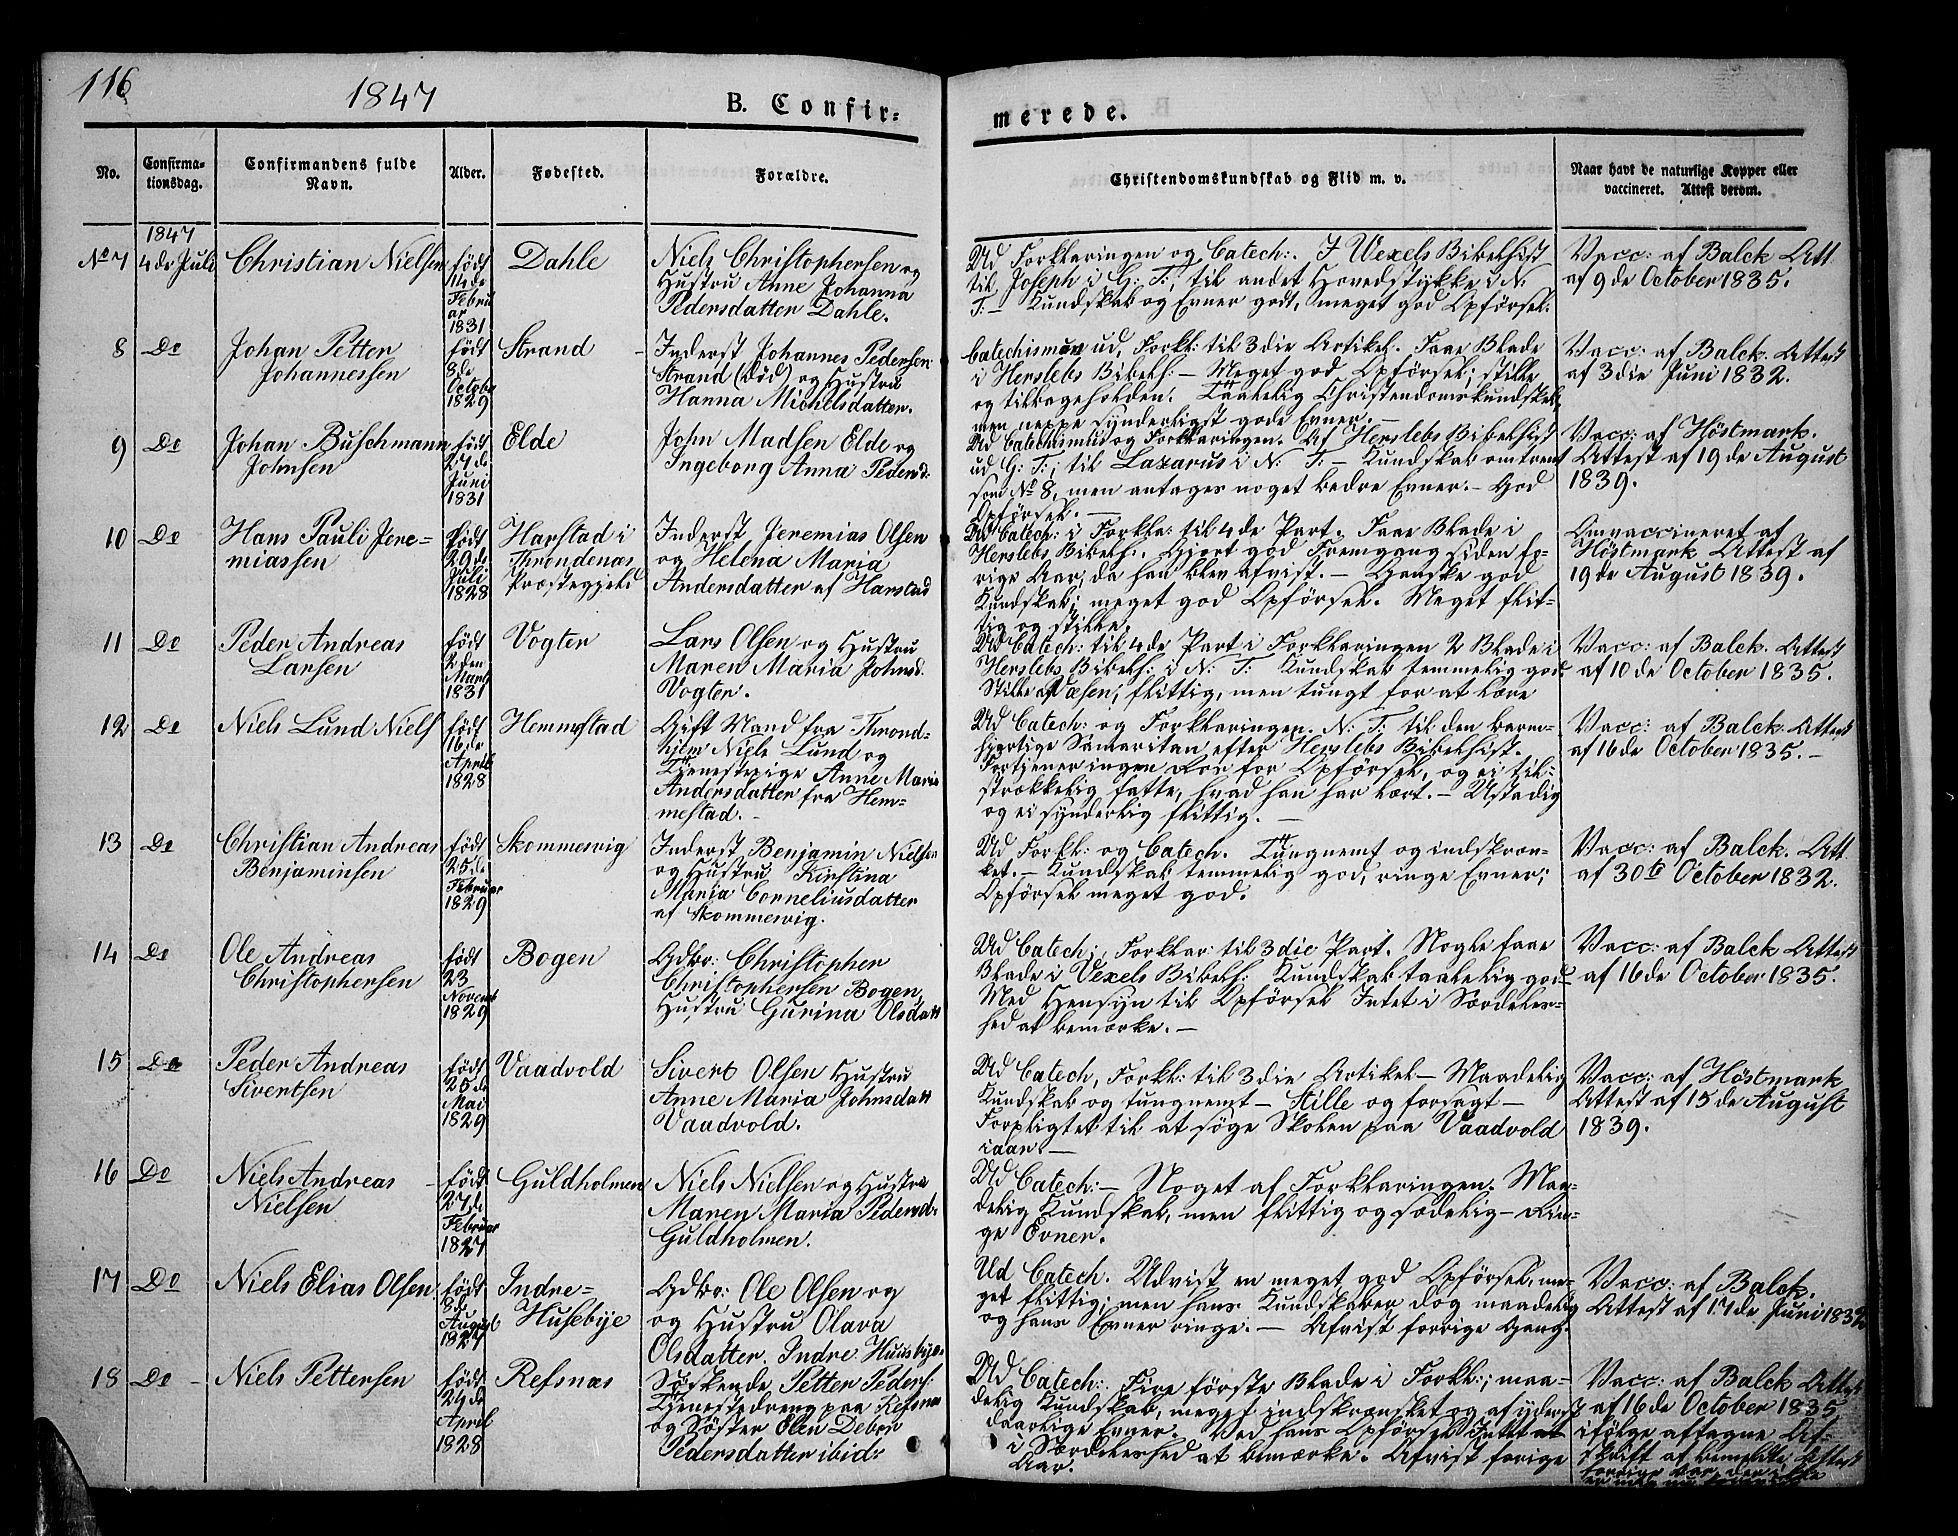 116
1847
B. Confir-
merede.
No.
Confirma-
tionsdag.
Confirmandens fulde
Navn.
Alder.
Fødested.
Forældre.
Christendomskundskab og Flid m. v.
Naar havt de naturlige Kopper eller
vaccineret. Attest derom.
1847
No 7
4de Juli
Christian Nielsen
født
11te
Febru
ar
1831
Dahle
Niels Christophersen og
Hustru Anne Johanna
Pedersdatter Dahle.
Ud Forklaringen og Catech:. I Wexels Bibelhist
til Joseph i G: T:, til andet Hovedstykke i N:
T: – Kundskab og Evner godt, meget god Opførsel.
Vacc: af Balck Att.
af 9de October 1835.
8
Do
Johan Petter
Johannessen
født
8de
Octobr
1829
Strand
Inderst Johannes Pedersen
Strand (død) og Hustru
Hanna Michelsdatter.
Catechismen ud, Forkl: til 3die Artikel. Faae Blade
i Herslebs Bibelh: – Meget god Opførsel; stille
og tilbageholden. Taalelig Christendomskundskab,
men neppe synderligst gode Evner. –
Vacc: af Balck. Attest
af 3die Juni 1832.
9
Do
Johan Buschmann
Johnsen
født
27de
Juni
1831
Elde
John Madsen Elde og
Ingeborg Anna Pedersd:
Ud Catechismus og Forklaringen. Af Herslebs Bibelhist
ud G: T:; til Lazarus i N: T: – Kundskab omtrent
som No 8, men antages noget bedre Evner. – God
Opførsel. –
Vacc: af Höstmark.
Attest af 19de August
1839.
10
Do
Hans Pauli Jere=
miassen
født
29de
Juli
1828
Harstad i
Throndenæs
Præstegjeld
Inderst Jeremias Olsen
og Helena Maria
Andersdatter af Harstad
Ud Catech: i Forkla: til 4de Part. Faae Blade i
Herslebs Bibelh:. Gjort god Fremgang siden fo-
rige Aar, da han blev afvist. – Ganske god
Kundskab; meget god Opførsel. Meget flit-
tig og stille.
Omvaccineret af
Höstmark Attest af
19de August 1839.
11
Do
Peder Andreas
Larsen
født
2den
Marts
1831
Vogter
Lars Olsen og Hustru
Maren Maria Johnsd.
Vogter.
Ud Catech: til 4de Part i Forklaringen 2 Blade i
Herslebs Bibelh: i N: T: Kundskab temmelig god
Stille af Væsen, flittig, men tungt for at lære
Vacc: af Balck. Attest
af 10de October 1835.
12
Do
Niels Lund Niels
født
16de
April
1828
Hemmestad
Gift Mand fra Thrond-
hjem Niels Lund og
Tjenestepige Anne Maria
Andersdatter fra Hem=
mestad. –
Ud Catech: og Forklaringen. N: T: til den barm-
hjertige Samaritan efter Herslebs Bibelhist.
Fortjener ingen Roes for Opførsel, og ei til-
strækkelig fatte, hvad han har lært. – Ustadig
og ei synderlig flittig. –
Vacc: af Balck. Attest
af 16de October 1835. –
13
Do
Christian Andreas
Benjaminsen
født
25de
Februar
1829
Skommesvig
Inderst Benjamin Nielsen
og Hustru Kirstina
Maria Corneliusdatter
af Skommesvig.
Ud Forkl: og Catech. Tungnemt og indskræn-
ket. – Kundskab temmelig god, ringe Evner;
Opførsel meget god.
Vacc: af Balck. Att.
af 30te October 1832.
14
Do
Ole Andreas
Christophersen
født
23
Novemb
1829
Bogen
Gdbr: Christopher
Christophersen Bogen,
Hustru Gurina Olsdatt
Ud Catech:, Forklar: til 3die Part. Nogle faae
Blade i Vexels Bibelh: Kundskab taalelig god –
Med Hensyn til Opførsel Intet i Særdeles-
hed at bemærke. –
Vacc: af Balck Attest
af 16de October 1835.
15
Do
Peder Andreas
Sivertsen
født
25de
Mai
1829
Vaadvold
Sivert Olsen Hustru
Anne Maria Johnsdatt
Vaadvold.
Ud Catech, Forkl: til 3die Artikel – Maadelig
Kundskab og tungnemt – Stille og forsagt –
Forpligtet til at søge Skolen paa Vaadvold
iaar –
Vacc: af Höstmark
Attest af 15de August
1839.
16
Do
Niels Andreas
Nielsen
født
27de
Februar
1827
Guldholmen
Niels Nielsen og Hustru
Maren Maria Pedersd:
Guldholmen.
Ud Catech: – Noget af Forklaringen. Maa-
delig Kundskab, men flittig og sædelig – Rin-
ge Evner.
17
Do
Niels Elias Olsen
født
8de
August
1827
Indre=
Husebye
Gdbr: Ole Olsen og
og Hustru Olava
Olsdatter. Indre Huusbye.
Ud Catech. Udvist en meget god Opførsel, me-
get flittig; men hans Kundskaber dog maadelig
og hans Evner ringe. – Afvist forrige Gang.
Vacc: af Balck.
Attest af 17de Juni 1832
18
Do
Niels Pettersen
født
24de
April
1828
Refsnæs
Søskende Petter Peders:
Tjenestedreng paa Refsnæs
og Søster Elen Debor
Pedersdatter ibid:
Ud Catech:. Fire første Blade i Forkl:; maa-
delig Kundskab, meget indskrænket og af yderst
daarlige Evner. Ved hans Opførsel Intet
i Særdeleshed at bemærke. Afvist forige
Aar.
Vacc: af Balck Attest
af 16de October 1835
ifølge aftagne Af-
skrift af